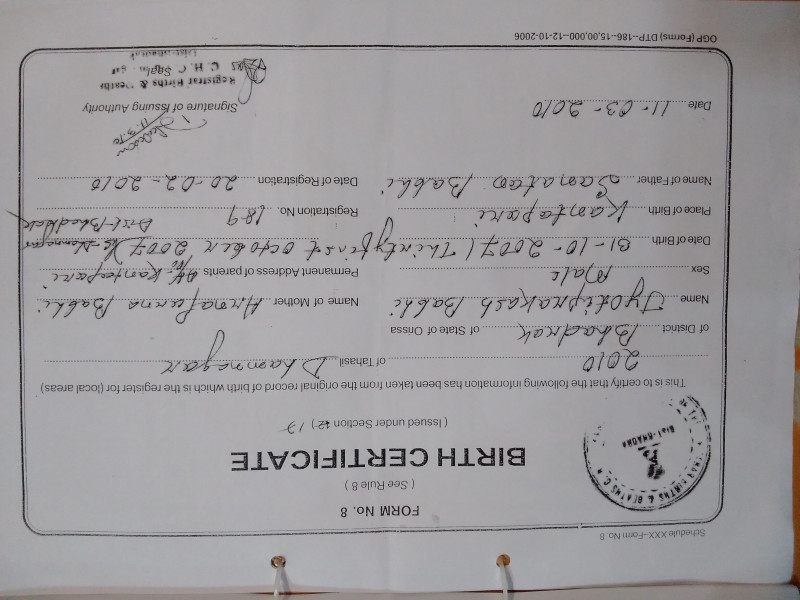 Schedule XXX–Form No. 8
FORM No. 8
( See Rule 8 )
BIRTH CERTIFICATE
( Issued under Section 12 ) 17
This is to certify that the following information has been taken from the original record of birth which is the register for (local areas)
2010 of Tahasil Dhamnagar
of District Bhadrak of State of Orissa
Name Jyotiprakash Babhi Name of Mother Annapurna Babhi
Sex Male Permanent Address of parents At- Kantapari
Date of Birth 31-10-2007 (Thirty first October 2007
Dist-Bhadrak
Place of Birth Kantapari Registration No. 189
Name of Father Sanatan Babhi Date of Registration 20-02-2010
11.3.10
Date 11-03-2010 Signature of Issuing Authority
Registrar Births & Deaths
C. H. C
OGP (Forms) DTP–186–15,00,000–12-10-2006